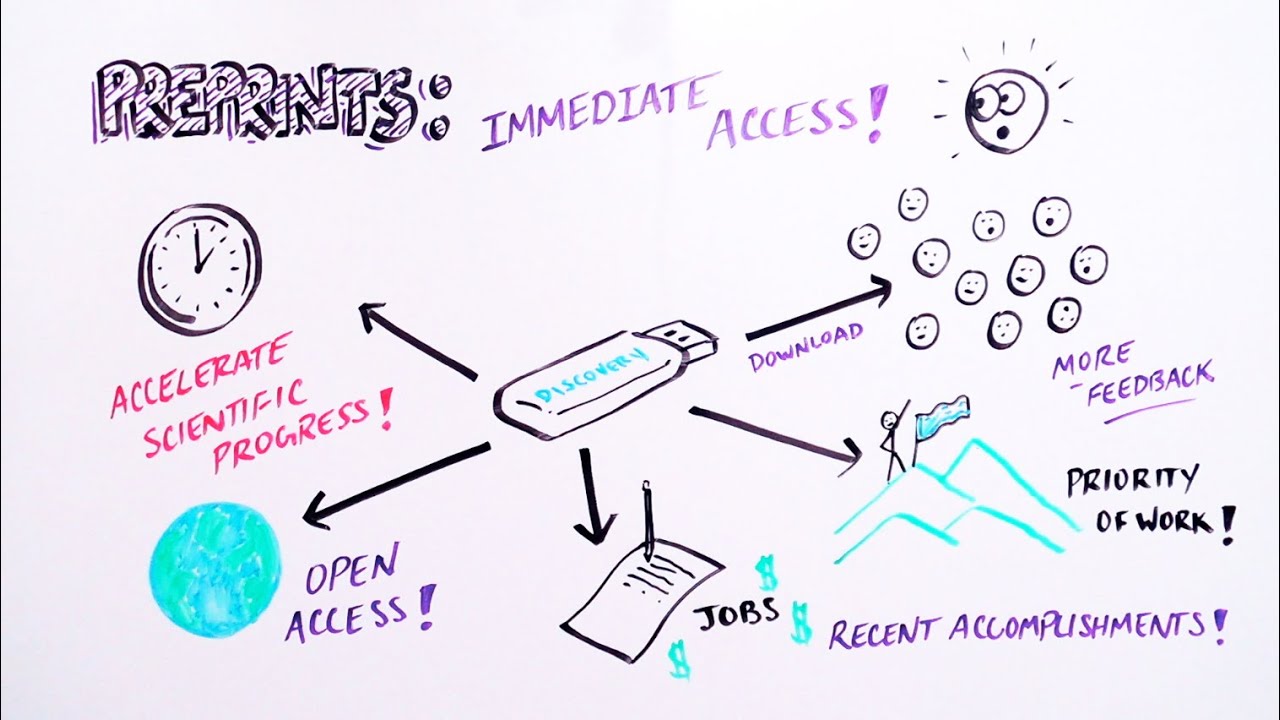 PREPRINTS:
IMMEDIATE
ACCESS!
ACCELERATE
SCIENTIFIC
PROGRESS!
DISCOVERY
DOWNLOAD
MORE
FEEDBACK
PRIORITY
OF WORK!
OPEN
ACCESS!
$
JOBS
$
$
RECENT ACCOMPLISHMENTS!